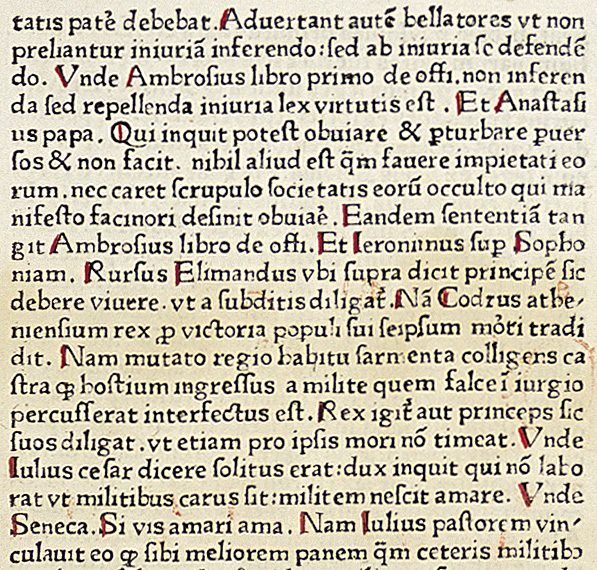 tatis patẻ debebat. Aduertant autē bellatores vt non
preliantur iniuriā inferendo: sed ab iniuria se defendē
do. Vnde Ambrosius libro primo de offi. non inferen
da sed repellenda iniuria lex virtutis est. Et Anastasi
us papa. Qui inquit potest obuiare & ꝑturbare ꝑuer
sos & non facit. nihil aliud est q̄m fauere impietati eo
rum. nec caret scrupulo societatis eorū occulto qui ma
nifesto facinori desinit obuiaẻ. Eandem sententiā tan
git Ambrosius libro de offi. Et Ieronimus suꝑ Sopho
niam. Rursus Elimandus vbi supra dicit principē sic
debere viuere. vt a subditis diligat᷑. Nā Codrus athe-
niensium rex ꝓ victoria populi sui seipsum mỏti tradi
dit. Nam mutato regio habitu sarmenta colligens ca
stra ꝙ hostium ingressus a milite quem falce ī iurgio
percusserat interfectus est. Rex igit᷑ aut princeps sic
suos diligat. vt etiam pro ipsis mori nō timeat. Vnde
Iulius cesar dicere solitus erat: dux inquit qui nō labo
rat vt militibus carus sit: militem nescit amare. Vnde
Seneca. Si vis amari ama. Nam Iulius pastorem vin-
culauit eo ꝙ sibi meliorem panem q̄m ceteris militibꝫ